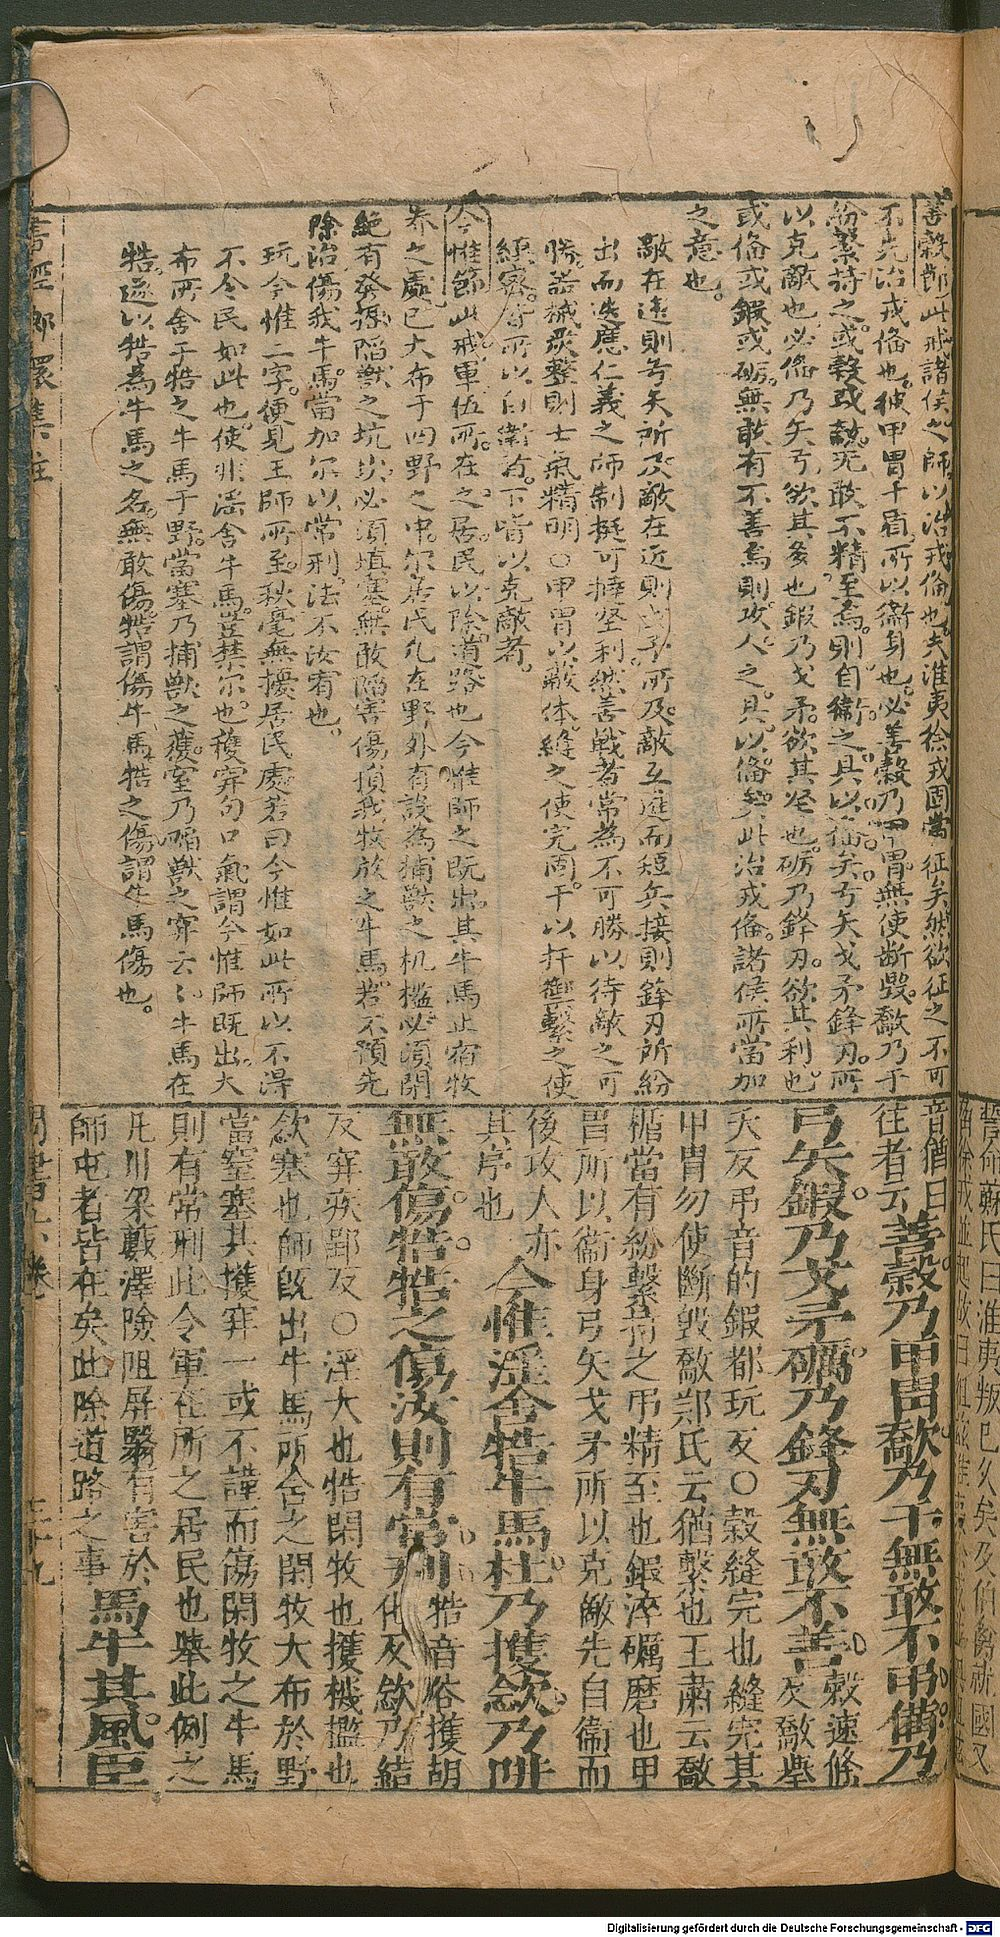 善敹節此戒諸侯之師以治戎俻也夫淮夷徐戎固當征矣然欲征之不可
不先治戎俻也彼甲冑干盾所以衞身也必善敹乃甲冑無使断毁敿乃干
紛繫持之或敹或敿无敢不精至焉則自衞之具以俻矣弓矢戈矛鋒刃所
以克敵也必俻乃矢弓欲其多也鍜乃戈矛欲其坚也砺乃鋒刃欲其利也
或俻或鍜或砺無敢有不善焉則攻人之具以俻矣此治戎俻諸侯所當加
之意也
敵在逺則弓矢所及敵在近則戈矛所及敵互進而短兵接則鋒刃所
出而迭應仁義之師制挺可撻坚利然善戦者常為不可勝以待敵之可
勝器械戎整則士氣精明〇甲冑以蔽体縫之使完固干以扞禦繫之使
今惟節此戒軍伍所在之居民以除道路也今惟師之既出其牛馬止宿牧
养之處已大布于四野之中尔居民凡在野外有設為捕獸之机槛必須閉
絶有發掘陷獸之坑坎必須填塞無敢陷害傷損我牧放之牛馬若不預先
除治傷我牛馬當加尔以常刑法不汝宥也
玩今惟二字便見王師所至秋毫無擾居民處若曰今惟如此所以不得
不令民如此也使非淫舍牛馬豈禁尔也䕶穽句口氣謂今惟師既出大
布所舍于牿之牛馬于野當塞乃捕獸之䕶窒乃陷獸之穽云云牛馬在
牿遂以牿為牛馬之名無敢傷牿謂傷牛馬牿之傷謂牛馬傷也
音僧曰
往者云善敹乃甲冑敿乃干無敢不弔備乃
弓矢鍜乃戈矛礪乃鋒刃無敢不善敹速條
反敿舉
夭反弔音的鍜都玩反〇敹縫完也縫完其
甲冑勿使斷毁敿鄭氏云猶繫也王肅云敿
楯當有紛繫持之弔精至也鍜淬礪磨也甲
冑所以衞身弓矢戈矛所以克敵先自衞而
後攻人亦
其序也今惟淫舍牿牛馬杜乃擭敜乃穽
無敢傷牿牿之傷汝則有常刑牿音俗擭胡
化反敜乃結
反穽疾郢反〇淫大也牿閑牧也擭機檻也
敜塞也師既出牛馬所舍之閑牧大布於野
當窒塞其擭穽一或不謹而傷閑牧之牛馬
則有常刑此令軍在所之居民也舉此例之
凡川梁藪澤險阻屏翳有害於
師屯者皆在矣此除道路之事馬牛其風臣
Digitalisierung gefördert durch die Deutsche Forschungsgemeinschaft - DFG